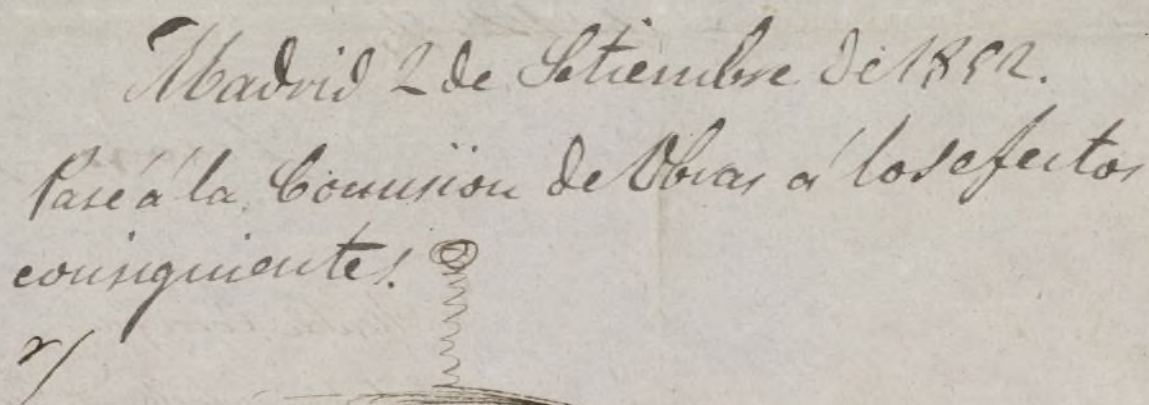 Madrid 2 de Setiembre de 1852.
Pase á la Comision de Obras á los efectos
consiguientes.